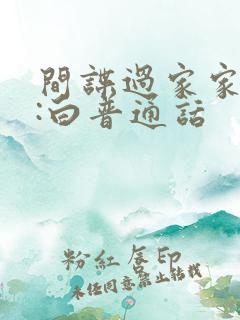 間諜過家家
:白普通話
粉紅唇印
未經同意禁止轉載